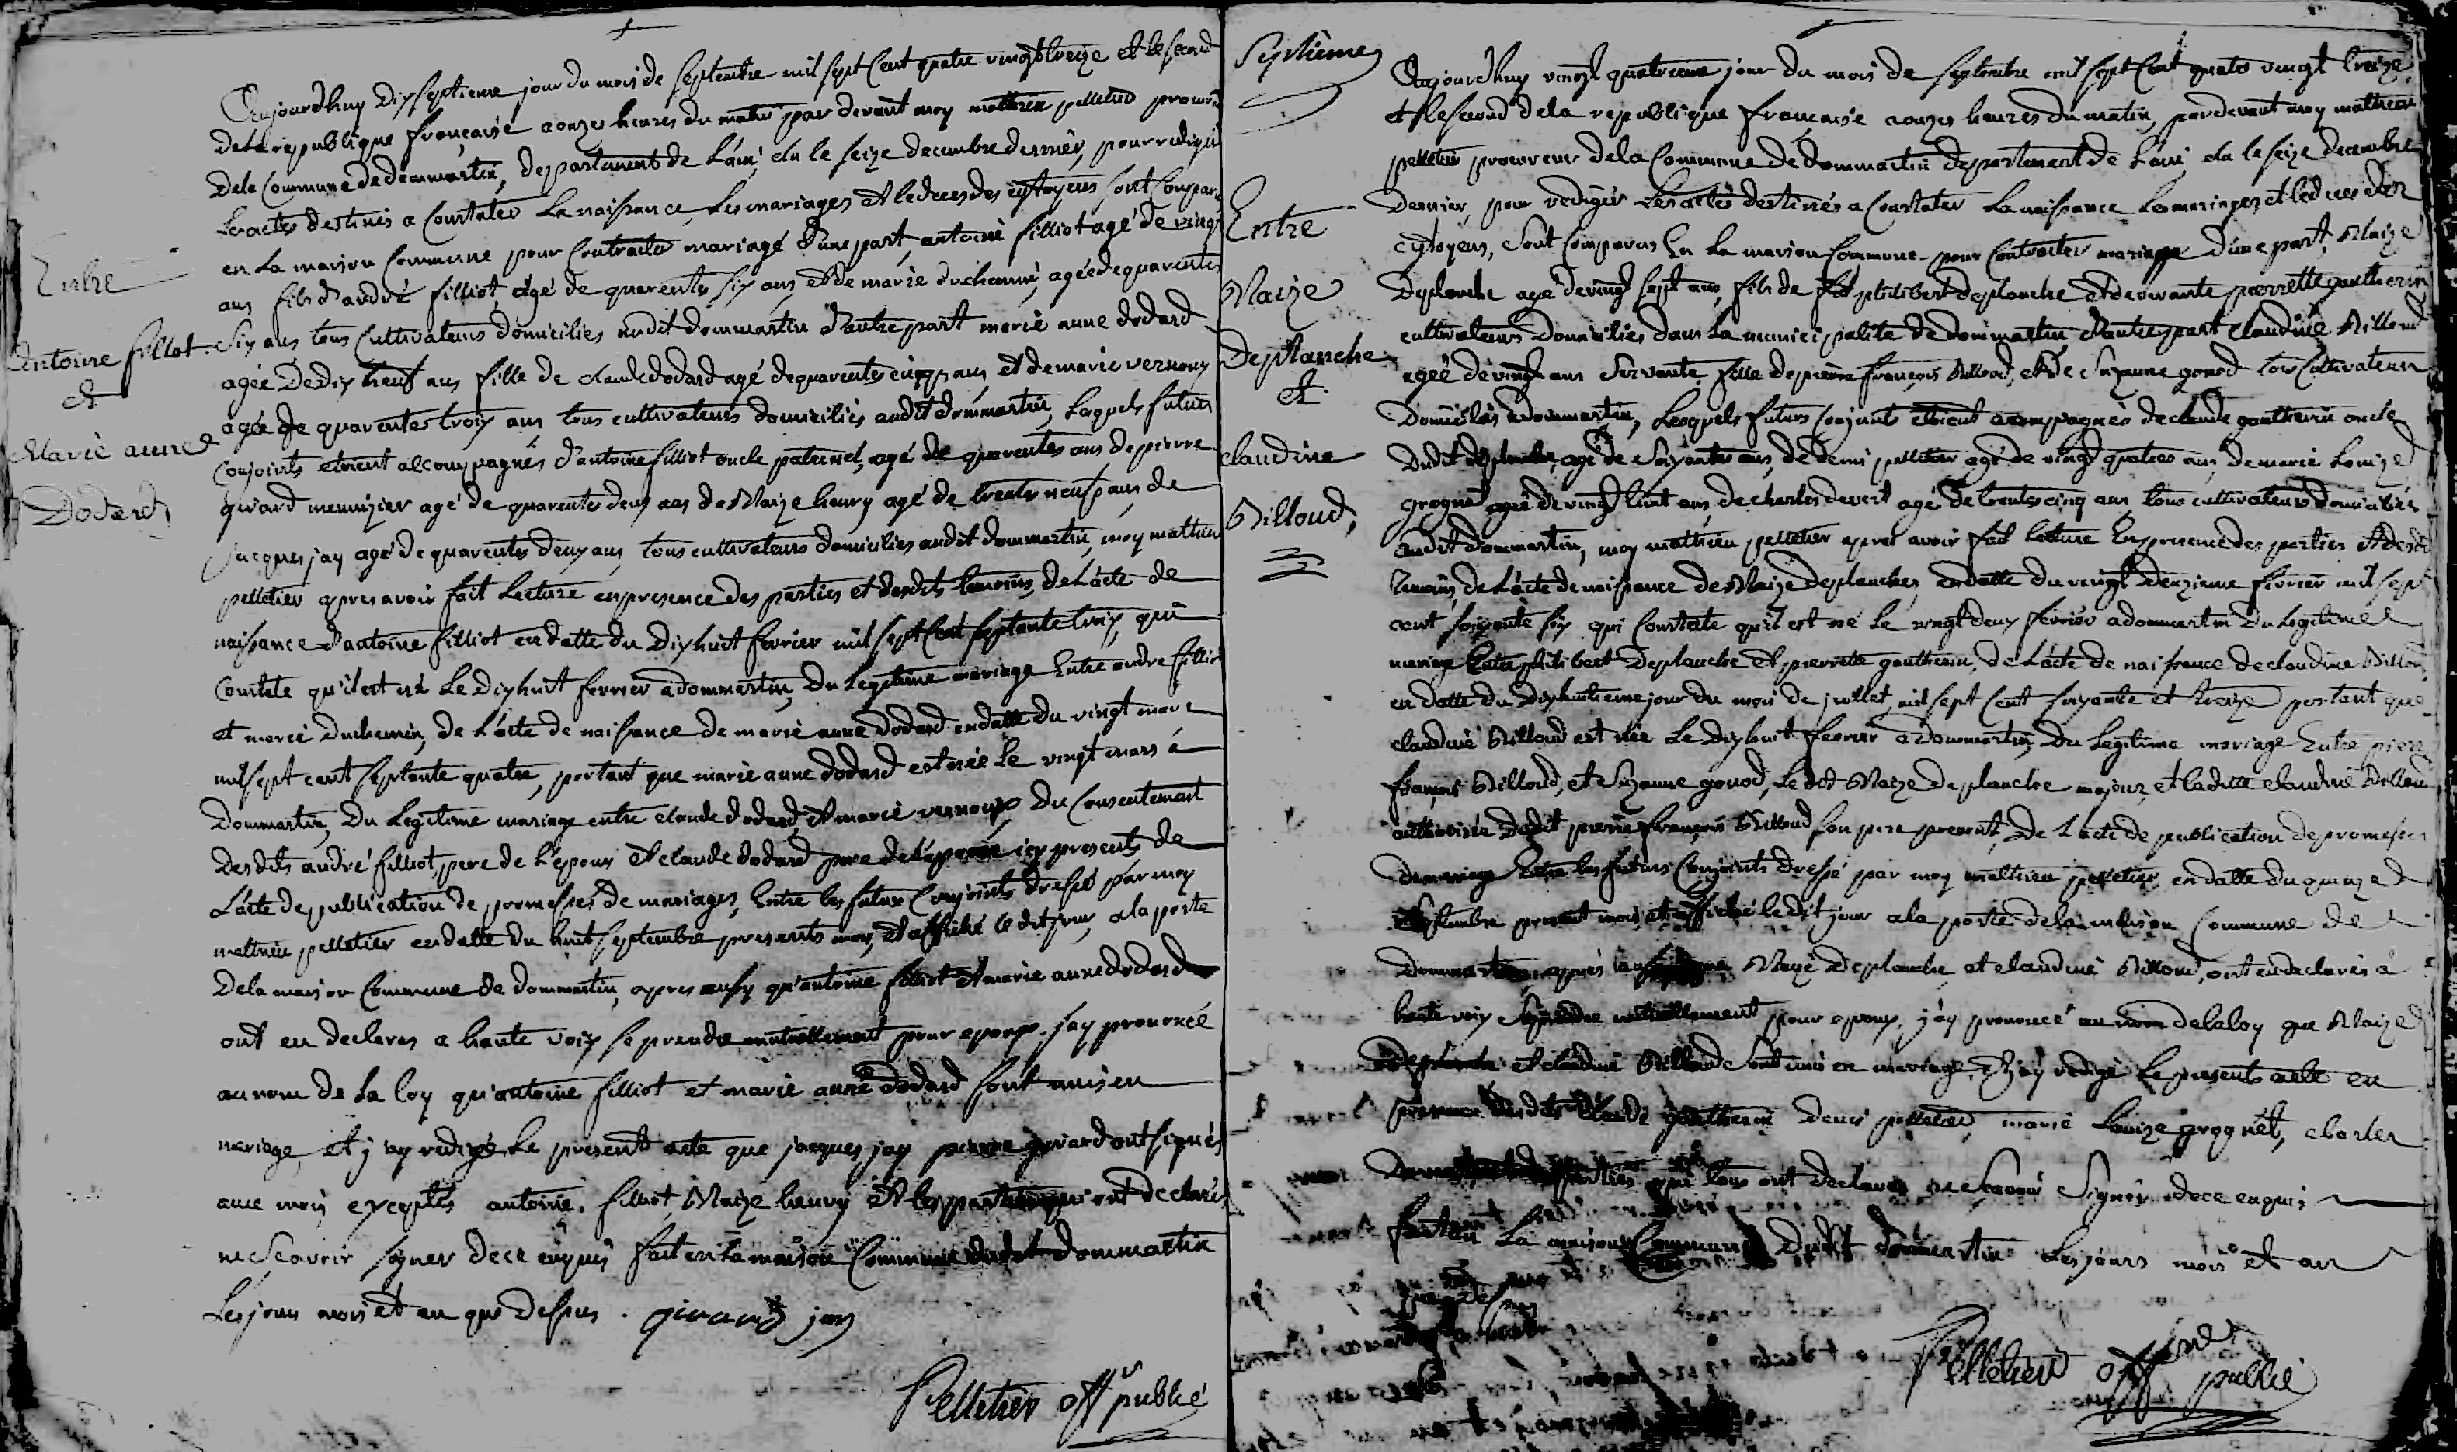 Entre
antoine filliot
et
Marie anne
Dodard
Aujourdhuy dixseptieme jour du mois de septembre mil sept Cent quatre vingt treize et le second
de la republique francaise a onze heures du matin par devant moy mathieu pelletier procureur
de la Commune de dommartin, departement de L'ain, elu le seize decembre dernier, pour rediger
Les actes destinés a Constater La naissance, Les mariages et le deces des cytoyens, sont Comparu
en La maison Commune pour Contracter mariage d'une part, antoine filliot agé de vingt
ans fils d'andré filliot, agé de quarente six ans, et de marie duchemin, agée de quarente
Six ans tous Cultivateurs domiciliés audit dommartin d'autre part marie anne dodard
agée de dix neuf ans fille de claude dodard agé de quarente cinq ans et de marie vernoux
agée de quarente trois ans tous cultivateurs domiciliés audit dommartin, Lesquels futurs
conjoints etoient accompagnés d'antoine filliot oncle paternel, agé de quarente ans de pierre
girard menuizier agé de quarente deux ans de Blaize henry agé de trente neuf ans de
Jacques jay agé de quarente deux ans, tous cultivateurs domiciliés audit dommartin, moy mathieu
pelletier apres avoir fait Lecture en presence des parties et desdits temoins, de L'acte de
naissance d'antoine filliot en datte du dix huit fevrier mil sept Cent septente trois, qui
Constate qu'il est né Le dix huit fevrier a dommartin, Du Legitime mariage Entre andre filliot
et marie duchemin, de L'acte de naissance de marie anne dodard en datte du vingt mars
mil sept cent septente quatre, portant que marie anne dodard est née Le vingt mars a
Dommartin, Du Legitime mariage entre claude dodard et marie vernoux, Du Consentement
desdits andré filliot, pere de L'epoux et claude dodard pere de L'epouse icy presents de
L'acte de publication de promesses de mariages, Entre les futurs Conjoints dressé par moy
mathieu pelletier en datte du huit septembre presents mois, et affiché le dit jour, a la porte
De la maison Commune de dommartin, apres aussy qu'antoine filliot et marie anne dodard
ont eu declarés a haute voix se prendre mutuellement pour epoux. j'ay prononcé
au nom de La loy qu'antoine filliot et marie anne dodard sont unis en
mariage, et j'ay redigé Le present acte que jacques jay pierre girard ont signés
avec moy exceptés antoine filliot Blaize henry et les parties qui ont declarés
ne Scavoir signer de ce enquis fait en La maison Commune dudit dommartin
Les jour mois et an que dessus. girard jay
Pelletier off public
Septieme
Entre
Blaize
Deplanche
et
claudine
Billoud,
Aujourdhuy vingt quatrieme jour du mois de septembre mil sept Cent quatre vingt treize
et le second de la republique francaise a onzes heures du matin, par devant moy mathieu
pelletier procureur de la Commune de dommartin departement de L'ain elu le seize decembre
Dernier, pour rediger Les actes destinés a Constater La naissance Les mariages et le deces des
cytoyens, Sont Comparus En La maison Commune pour Contracter mariage d'une part, Blaize
Deplanche agé de vingt sept ans, fils de philibert deplanche et de vivante pierrette gautherin
cultivateurs Domiciliés dans La municipalité de dommartin d'autre part claudine Billoud
agée de vingt ans Servante fille de pierre françois Billoud, et de Suzanne gonod tous Cultivateurs
Domiciliés a dommartin, Lesquels futurs Conjoints etoient accompagnés de claude gautherin oncle
Dudit deplanche, agé de Soixante ans, de denis pelletier agé de vingt quatre ans, de marie Louize
grognet agée de vingt huit ans, de charles devert agé de trente cinq ans tous cultivateurs domiciliés
audit dommartin, moy mathieu pelletier apres avoir fait Lecture En presence des parties et desdits
temoins, de L'acte de naissance de Blaize deplanche, en datte du vingt deuzieme fevrier mil sept
cent soixante six qui Constate qu'il est né Le vingt deux fevrier a dommartin Du Legitime
mariage Entre philibert Deplanche et pierrette gautherin, de L'acte de naissance de claudine Billoud
en datte du dixhuitieme jour du mois de juillet mil sept Cent soixante et treize portant que
claudine Billoud est née Le dix huit fevrier a dommartin, Du Legitime mariage Entre pierre
françois Billoud, et Suzanne gonod, Le dit Blaize Deplanche majeur, et la ditte claudine Billoud
authorisée dudit pierre françois Billoud son pere present, De L'acte de publication de promesses
de mariage Entre les futurs Conjoints dressé par moy mathieu pelletier, en datte du quinze
Septembre present mois, et affiché le dit jour a la porte de la maison Commune de
Dommartin, apres aussy Blaize deplanche et claudine Billoud, ont eu declarés a
haute voix Se prendre mutuellement pour epoux, j'ay prononcé au nom de la loy que Blaize
Deplanche et claudine Billoud Sont unis en mariage, et j'ay redigé Le present acte en
presence desdits claude gautherin denis pelletier, marie Louize grognet, charles
parties qui tous ont declarés ne Scavoir Signer de ce enquis
fait en La maison Commune dudit dommartin Les jours mois et an
que dessus
Pelletier off public